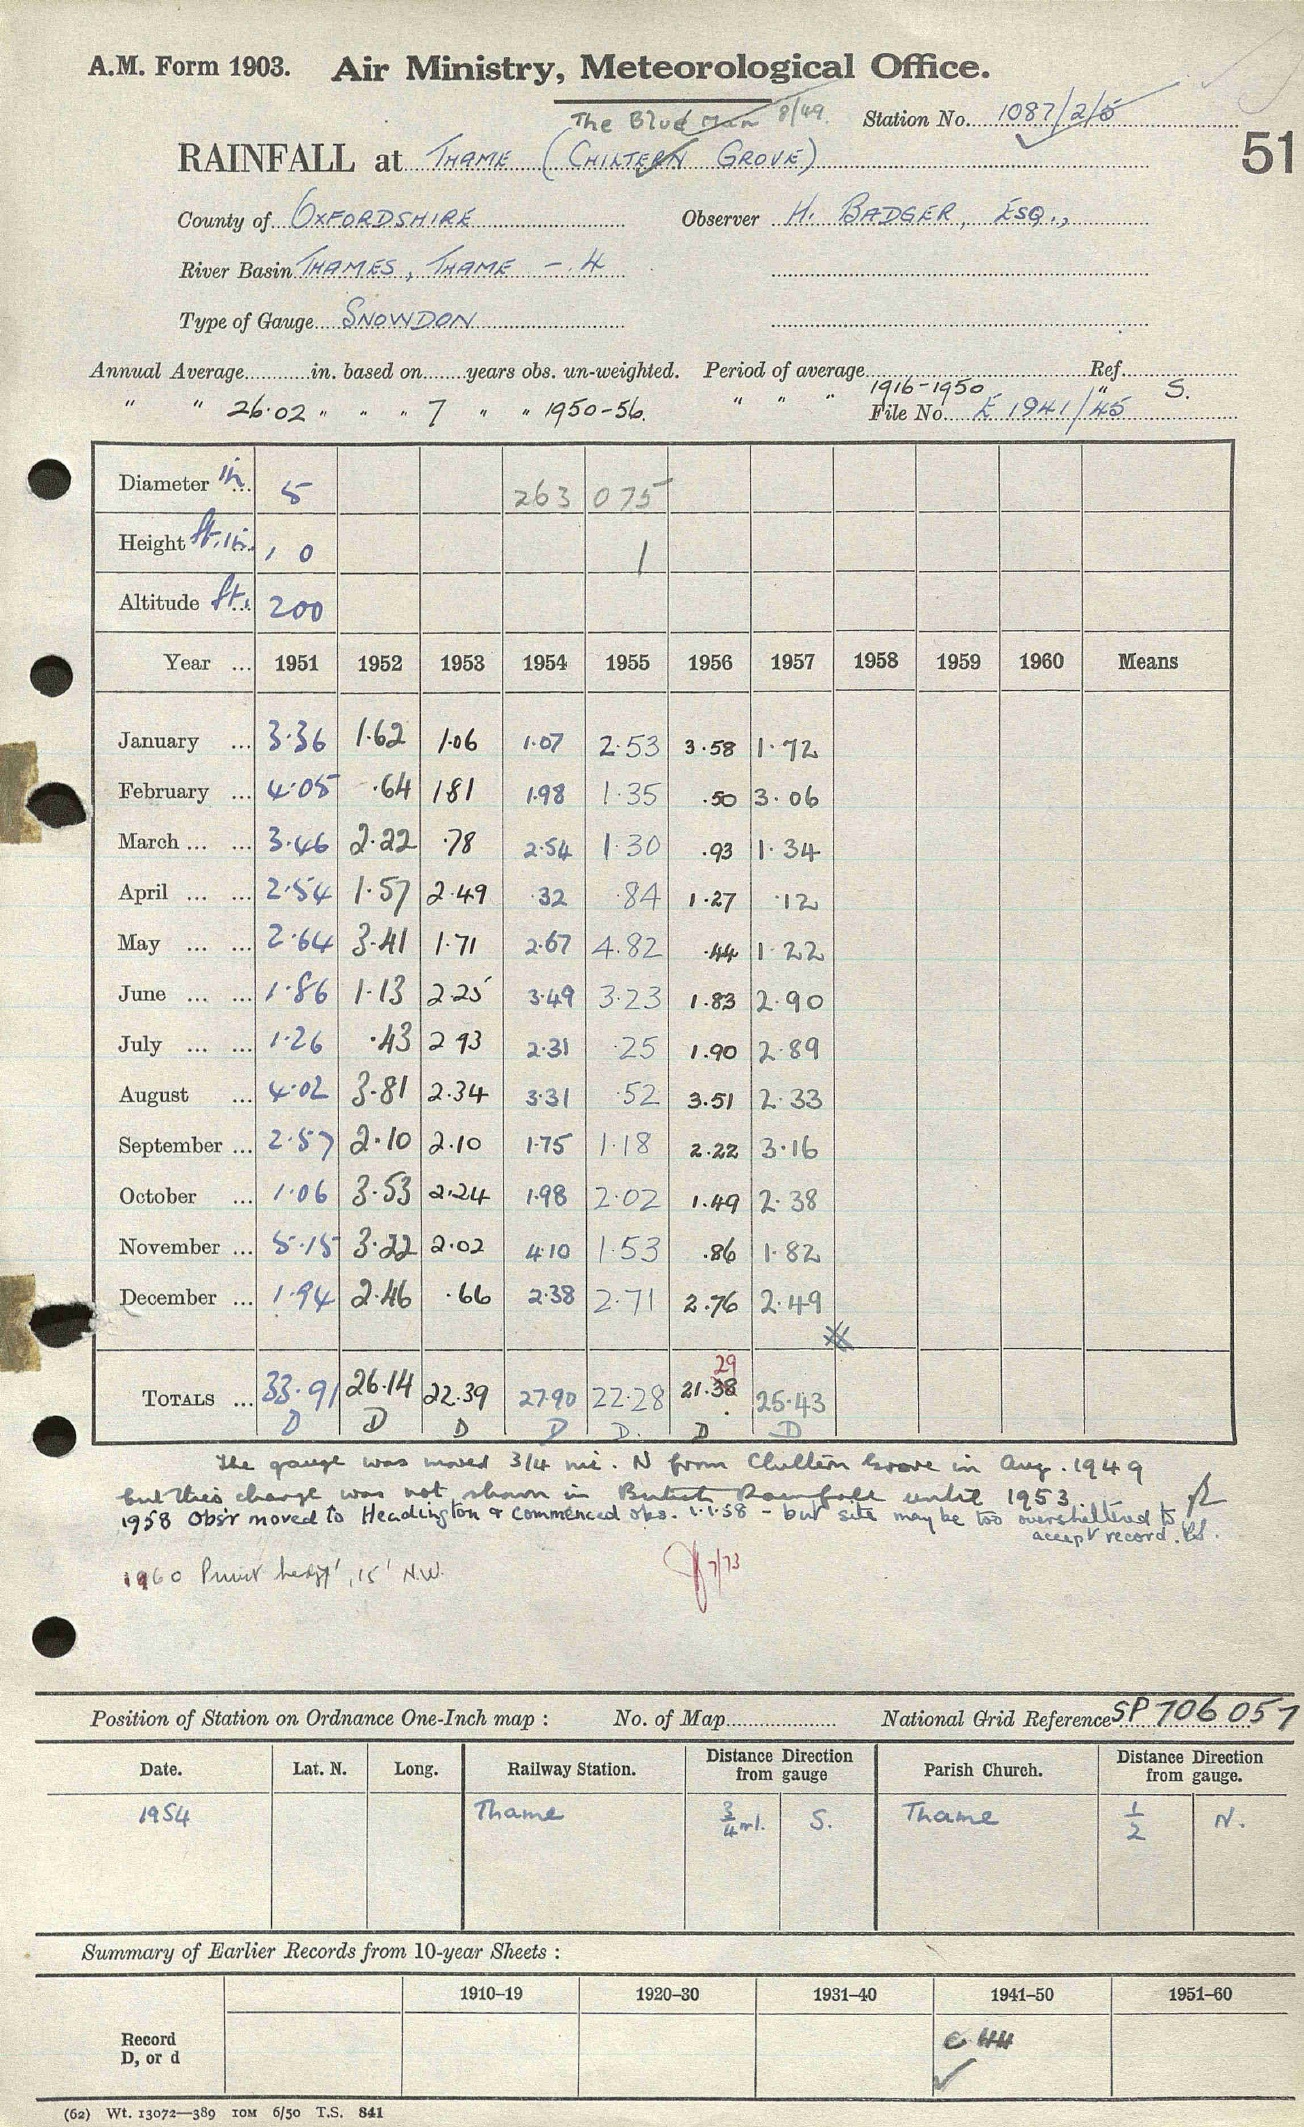 A.M. Form 1903. Air Ministry, Meteorological Office.
The Blue Man 8/49. Station No. 1087/2/5
RAINFALL at THAME (CHILTERN GROVE) 51
County of OXFORDSHIRE Observer H. BADGER, ESQ.,
River Basin THAMES, THAME - 4
Type of Gauge SNOWDON
Annual Average in. based on years obs. un-weighted. Period of average Ref.
" " 26.02 " " " 7 " " 1950-56. " " " 1916-1950 " S.
File No. E 1941/45
Diameter in. 5 263 075
Height ft. in. 1 0 1
Altitude ft. 200
Year ... 1951 1952 1953 1954 1955 1956 1957 1958 1959 1960 Means
January ... 3.36 1.62 1.06 1.07 2.53 3.58 1.72
February ... 4.05 .64 1 81 1.98 1.35 .50 3.06
March ... ... 3.46 2.22 .78 2.54 1.30 .93 1.34
April ... ... 2.54 1.57 2.49 .32 .84 1.27 .12
May ... ... 2.64 3.41 1.71 2.67 4.82 .44 1.22
June ... ... 1.86 1.13 2.25 3.49 3.23 1.83 2.90
July ... ... 1.26 .43 2 93 2.31 .25 1.90 2.89
August ... 4.02 3.81 2.34 3.31 .52 3.51 2.33
September ... 2.57 2.10 2.10 1.75 1.18 2.22 3.16
October ... 1.06 3.53 2.24 1.98 2.02 1.49 2.38
November ... 5.15 3.22 2.02 4.10 1.53 .86 1.82
December ... 1.94 2.46 .66 2.38 2.71 2.76 2.49
29
TOTALS ... 33.91 26.14 22.39 27.90 22.28 21.38 25.43
D D D D D. D D
The gauge was moved 3/4 mi. N from Chiltern Grove in Aug. 1949
but this change was not shown in British Rainfall until 1953
1958 Obs'r moved to Headington & commenced obs. 1.1.58 - but site may be too oversheltered to
accept record.
1960 Privet hedge, 15' N.W.
7/73
Position of Station on Ordnance One-Inch map : No. of Map National Grid Reference SP 706 057
Date. Lat. N. Long. Railway Station. Distance Direction from gauge Parish Church. Distance Direction from gauge.
1954 Thame 3/4 ml. S. Thame 1/2 N.
Summary of Earlier Records from 10-year Sheets :
1910-19 1920-30 1931-40 1941-50 1951-60
Record
D, or d
c 44
(62) Wt. 13072—389 10M 6/50 T.S. 841